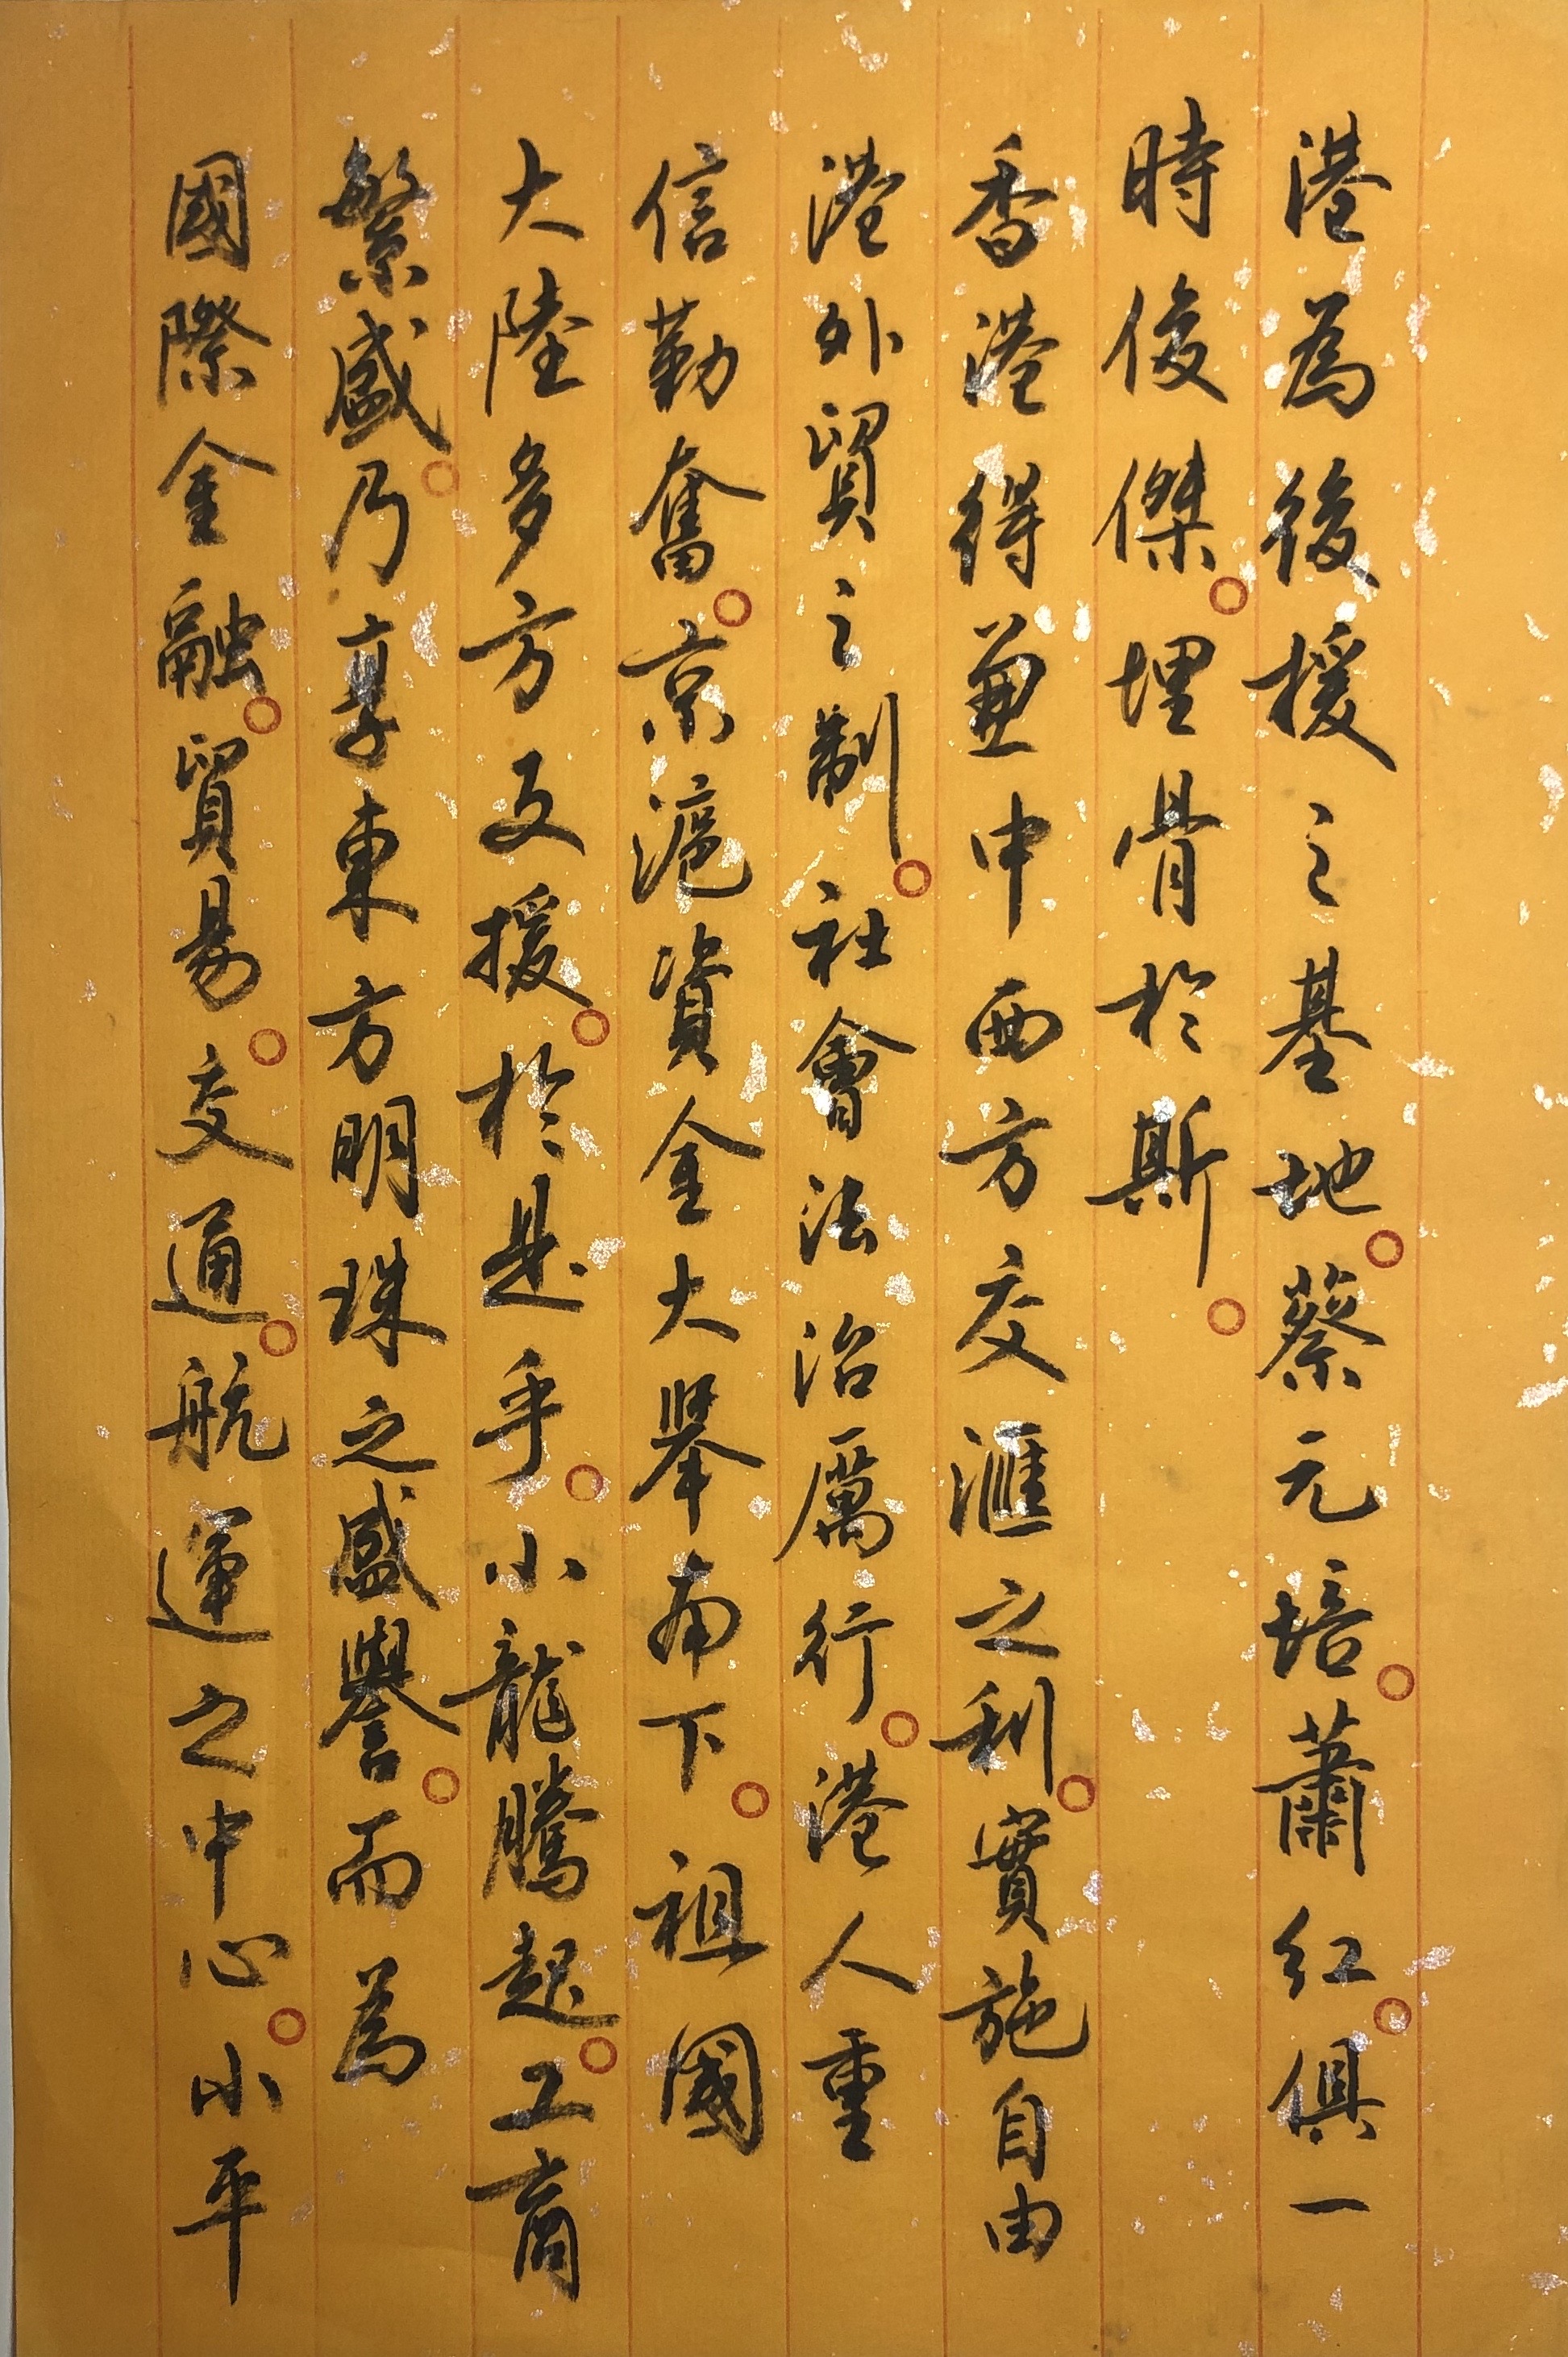 港為後援之基地。蔡元培。蕭紅。俱一
時俊傑。埋骨於斯。
香港得兼中西方交滙之利。實施自由
港外貿之制。社會法治厲行。港人重
信勤奮。京滬資金大舉南下。祖國
大陸多方支援。於是乎。小龍騰起。工商
繁盛。乃享東方明珠之盛譽。而為
國際金融。貿易。交通。航運之中心。小平